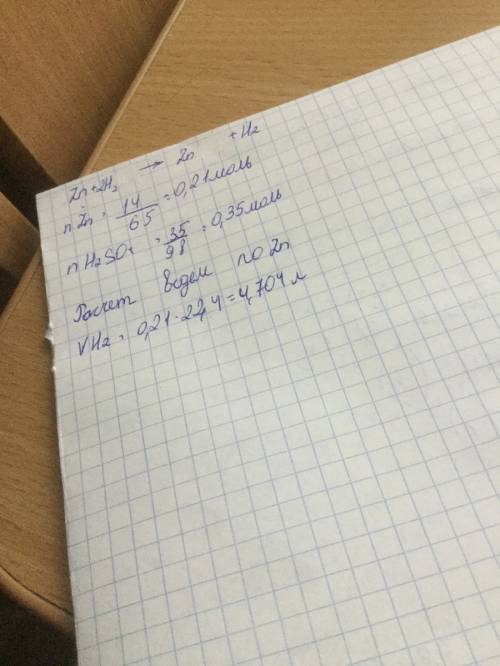 Zn+2H₂ → Zn +H₂
n Zn = 14/65 = 0,21 моль
n H₂SO₄ = 35/98 = 0,35 моль
Расчет ведем по Zn
VH₂ = 0,21·22,4 = 4,704 л